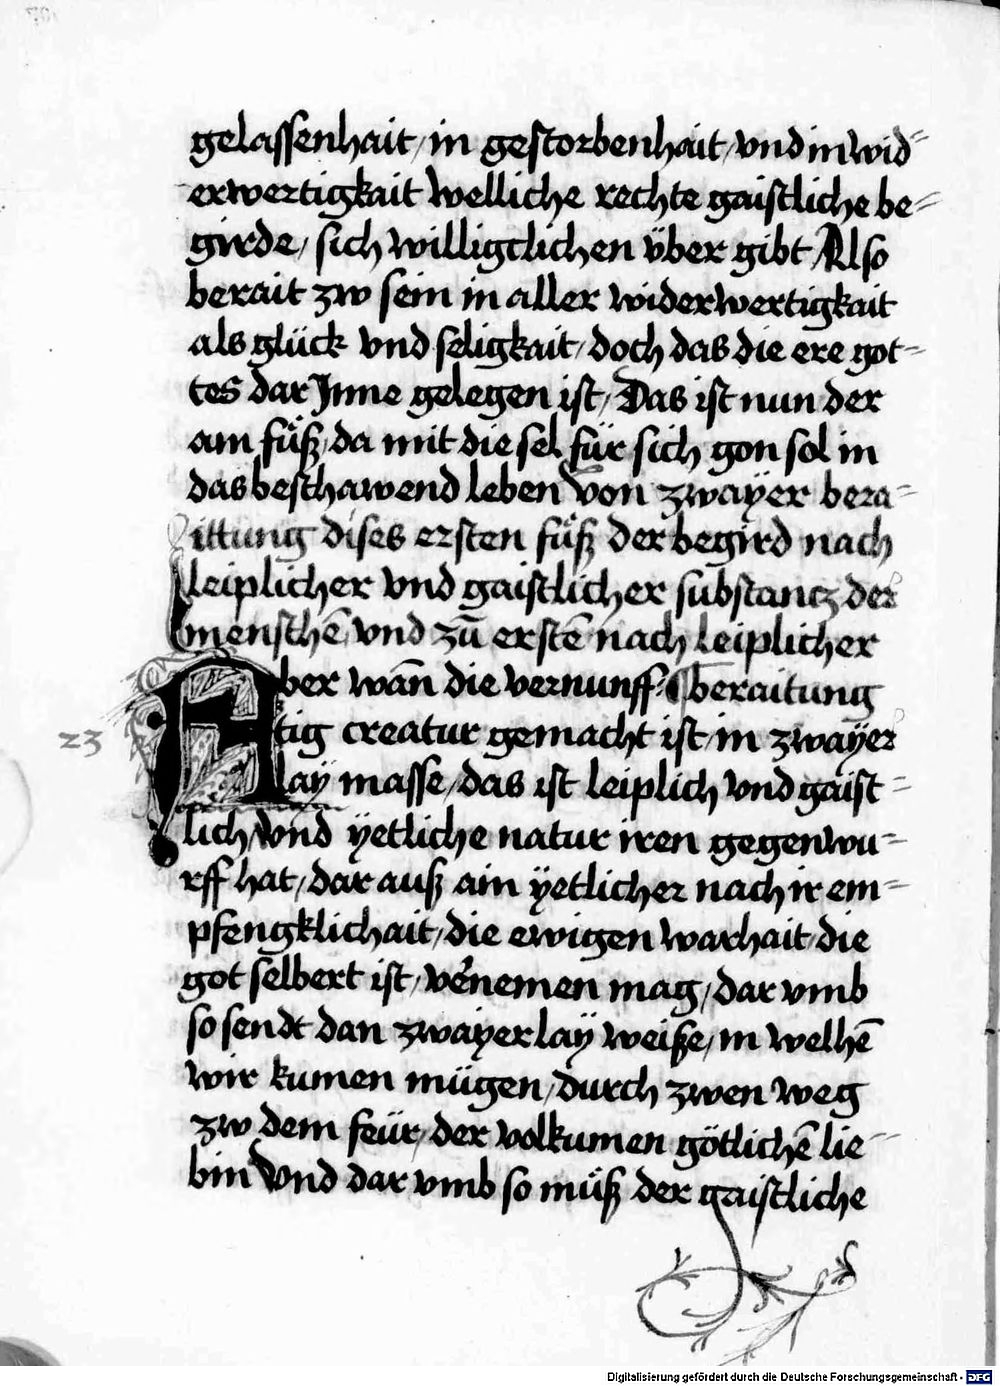 gelassenhait / in gestorbenhait / vnd in wid=
erwertigkait welliche rechte gaistliche be=
girde / sich willigclichen über gibt / Also
berait zw sein in aller widerwertigkait
als glück vnd seligkait / doch das die ere got=
tes dar Jnne gelegen ist / Das ist nun der
am fůß / da mit die sel für sich gon sol in
das beschawend leben Von zwayer bera=
ittung dises ersten fůß der begird nach
leiplicher vnd gaistlicher substantz der
menschē / vnd zū erstē nach leiplicher
Aber wān die vernunff= beraitung
23 tig creatur gemacht ist / in zwaÿer
laÿ masse / das ist leiplich vnd gaist=
lich / Vnd ÿetliche natur iren gegenwu=
rff hat / dar auß ain ÿetlicher nach ir em=
pfengklichait / die ewigen warhait / die
got selbert ist / v'enemen mag / dar vmb
so sendt dan zwaÿerlaÿ weiße / in welhē
wir kumen mügen / durch zwen weg
zw dem feür / der volkumen götlichē lie=
bin Vnd dar vmb so můß der gaistliche
Digitalisierung gefördert durch die Deutsche Forschungsgemeinschaft - DFG